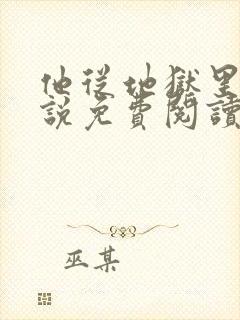 他從地獄里
說免費閱讀
巫某